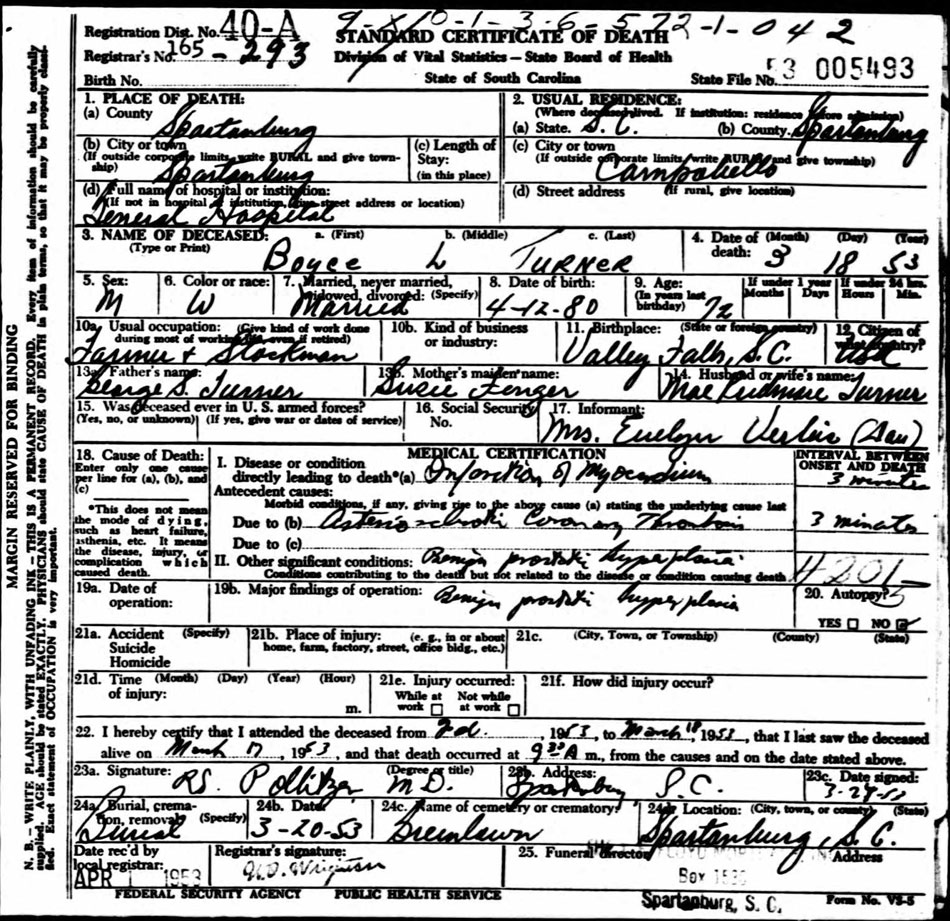 9-X10-1-3-6-572-1-042
Registration Dist. No. 40-A
STANDARD CERTIFICATE OF DEATH
Registrar's No. 165 - 293
Division of Vital Statistics — State Board of Health
Birth No.
State of South Carolina
State File No. 53 005493
MARGIN RESERVED FOR BINDING
N. B. — WRITE PLAINLY, WITH UNFADING INK — THIS IS A PERMANENT RECORD. Every item of information should be carefully
supplied. AGE should be stated EXACTLY. PHYSICIANS should state CAUSE OF DEATH in plain terms, so that it may be properly classi-
fied. Exact statement of OCCUPATION is very important.
1. PLACE OF DEATH:
(a) County
Spartanburg
(b) City or town
(If outside corporate limits, write RURAL and give town-
ship)
Spartanburg
(c) Length of
Stay:
(in this place)
(d) Full name of hospital or institution:
(If not in hospital or institution, give street address or location)
General Hospital
2. USUAL RESIDENCE:
(Where deceased lived. If institution: residence before admission)
(a) State. S. C. (b) County. Spartanburg
(c) City or town
(If outside corporate limits, write RURAL and give township)
Campobello
(d) Street address (If rural, give location)
3. NAME OF DECEASED: a. (First) b. (Middle) c. (Last)
(Type or Print)
Boyce L TURNER
4. Date of (Month) (Day) (Year)
death: 3 18 53
5. Sex:
M
6. Color or race:
W
7. Married, never married,
widowed, divorced: (Specify)
Married
8. Date of birth:
4-12-80
9. Age:
(In years last
birthday) 72
If under 1 year
Months Days
If under 24 hrs.
Hours Min.
10a. Usual occupation: (Give kind of work done
during most of working life, even if retired)
Farmer & Stockman
10b. Kind of business
or industry:
11. Birthplace: (State or foreign country)
Valley Falls, S.C.
12. Citizen of
what country?
USA
13a. Father's name:
George S. Turner
13b. Mother's maiden name:
Susie Finger
14. Husband or wife's name:
Mae Pridmore Turner
15. Was deceased ever in U. S. armed forces?
(Yes, no, or unknown) (If yes, give war or dates of service)
16. Social Security
No.
17. Informant:
Mrs. Evelyn (Dau)
18. Cause of Death:
Enter only one cause
per line for (a), (b), and
(c)
*This does not mean
the mode of dying,
such as heart failure,
asthenia, etc. It means
the disease, injury, or
complication which
caused death.
MEDICAL CERTIFICATION
I. Disease or condition
directly leading to death*(a) Infarction of Myocardium
Antecedent causes:
Morbid conditions, if any, giving rise to the above cause (a) stating the underlying cause last
Due to (b) Coronary Thrombosis
Due to (c)
II. Other significant conditions: Benign prostatic hyperplasia
Conditions contributing to the death but not related to the disease or condition causing death
INTERVAL BETWEEN
ONSET AND DEATH
3 minutes
3 minutes
4201
19a. Date of
operation:
19b. Major findings of operation: Benign prostatic hyperplasia
20. Autopsy?
YES NO
21a. Accident (Specify)
Suicide
Homicide
21b. Place of injury: (e. g., in or about
home, farm, factory, street, office bldg., etc.)
21c. (City, Town, or Township) (County) (State)
21d. Time (Month) (Day) (Year) (Hour)
of injury: m.
21e. Injury occurred:
While at Not while
work at work
21f. How did injury occur?
22. I hereby certify that I attended the deceased from , 1953, to March 18, 1953, that I last saw the deceased
alive on March 17, 1953, and that death occurred at 9 30 A m., from the causes and on the date stated above.
23a. Signature: (Degree or title)
R.S. Pollitzer M.D.
23b. Address:
Spartanburg S.C.
23c. Date signed:
3-29-53
24a. Burial, crema-
tion, removal (Specify)
Burial
24b. Date
3-20-53
24c. Name of cemetery or crematory:
Greenlawn
24d. Location: (City, town, or county) (State)
Spartanburg, S.C.
Date rec'd by
local registrar:
APR 1953
Registrar's signature:
25. Funeral director Address
Box 1530
Spartanburg, S. C.
FEDERAL SECURITY AGENCY PUBLIC HEALTH SERVICE
Form No. VS-5